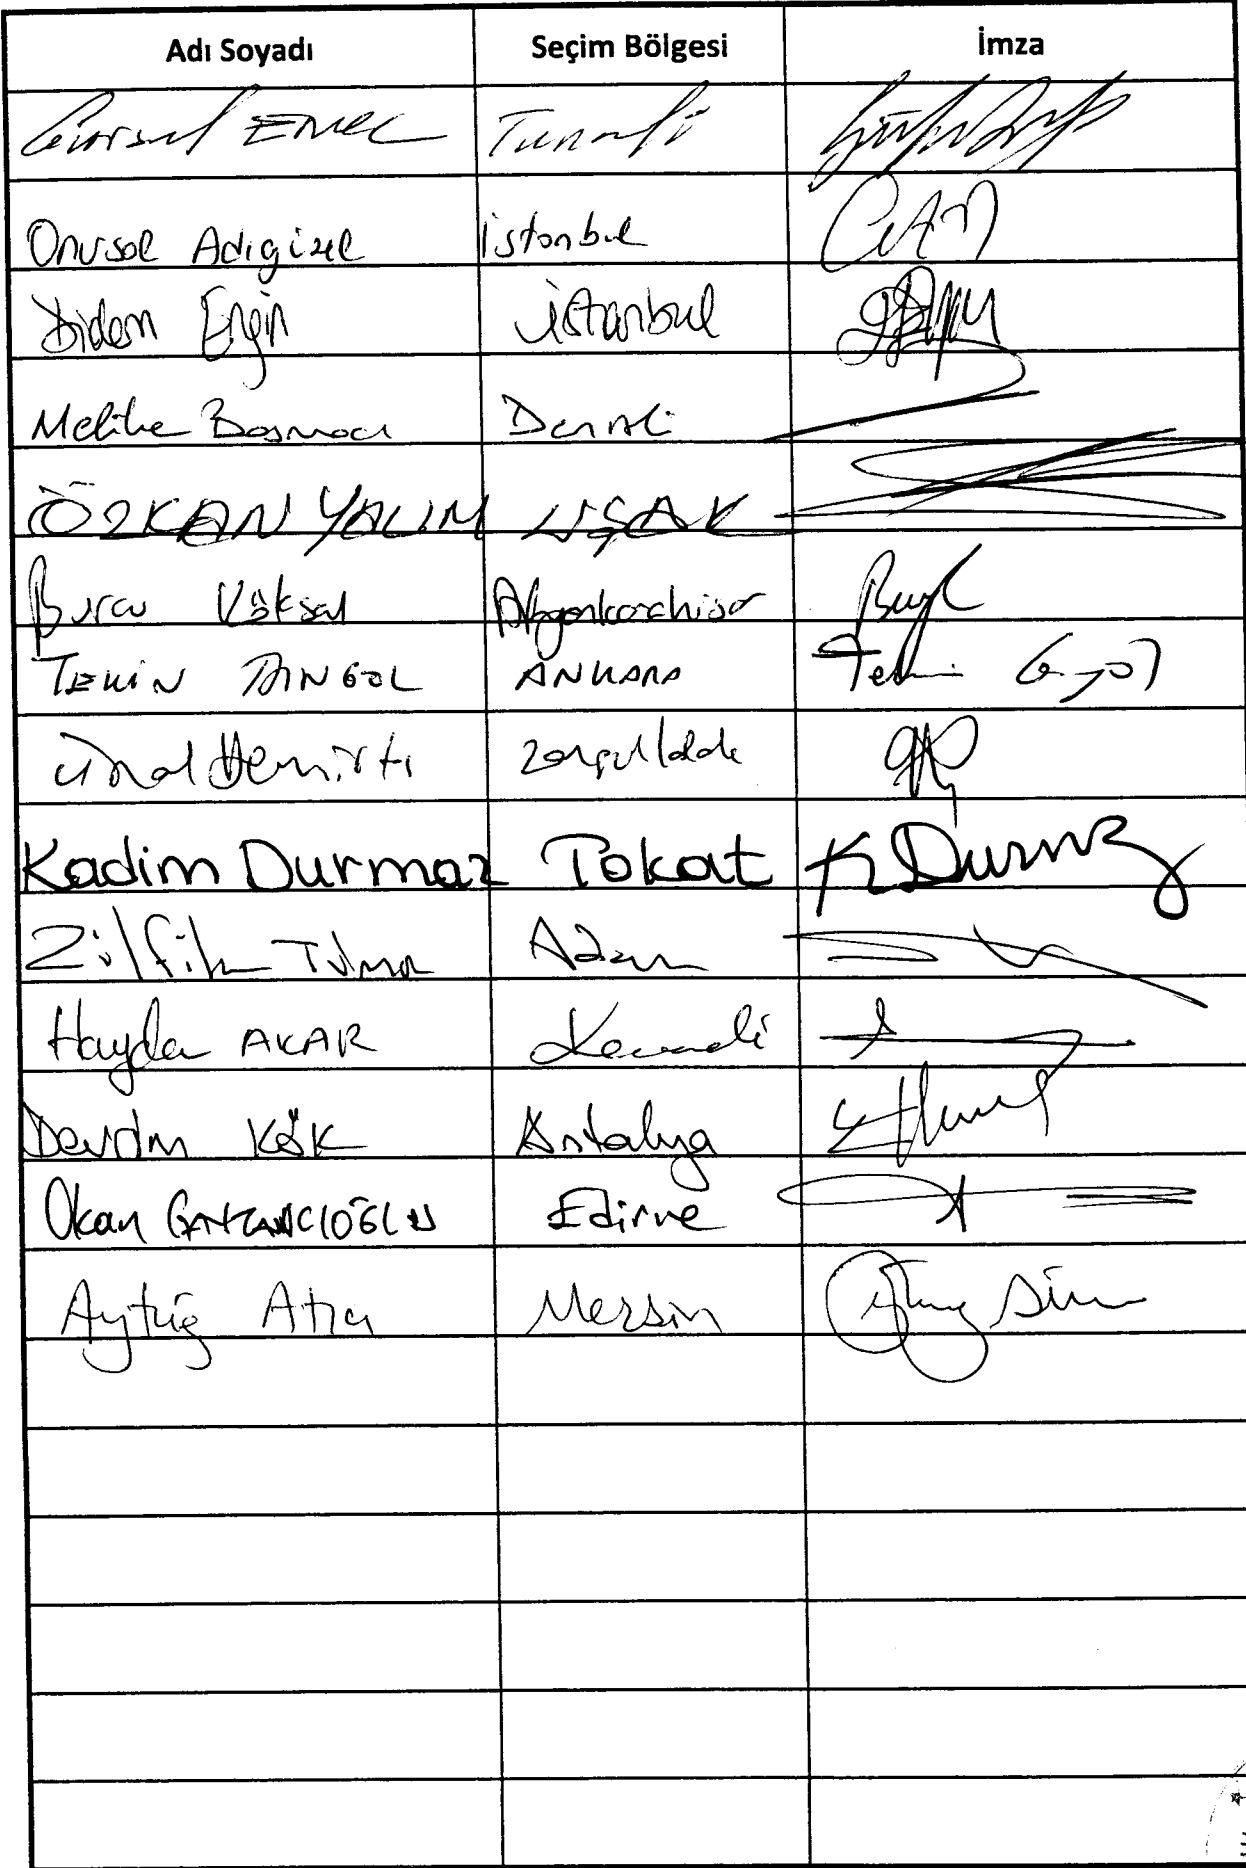 Adı Soyadı Seçim Bölgesi İmza
Gürsel EROL Tunceli
Onursal Adıgüzel İstanbul
Didem Engin İstanbul
Melike Basmacı Denizli
ÖZKAN YALIM UŞAK
Burcu Köksal Afyonkarahisar
TEKİN BİNGÖL ANKARA
Ünal Demirtaş Zonguldak
Kadim Durmaz Tokat K Durmaz
Zülfikar Tümer Adana
Haydar AKAR Kocaeli
Devrim KÖK Antalya
Okan GAYTANCIOĞLU Edirne
Aytuğ Atıcı Mersin